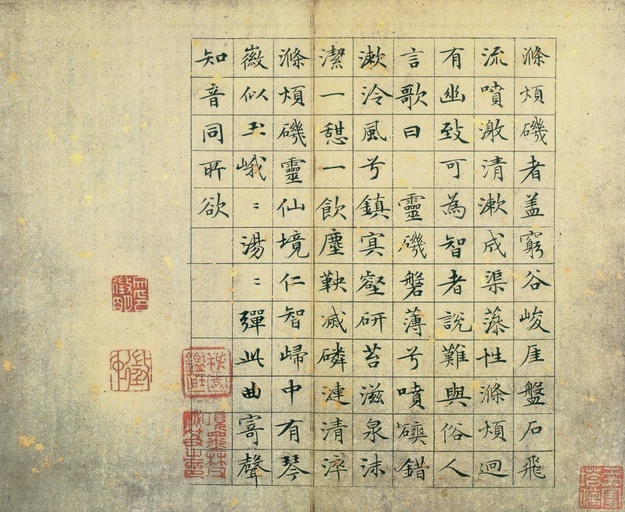 滌煩磯者盖窮谷峻厓盤石飛
流噴激清漱成渠蕩性滌煩迴
有幽致可為智者說難與俗人
言歌曰 靈磯盤薄兮噴礐錯
漱泠風兮鎮冥壑研苔滋泉沫
潔一憇一飲塵鞅滅磷漣清淬
滌煩磯靈仙境仁智歸中有琴
徽似玉峨〻湯〻彈此曲寄聲
知音同所欲